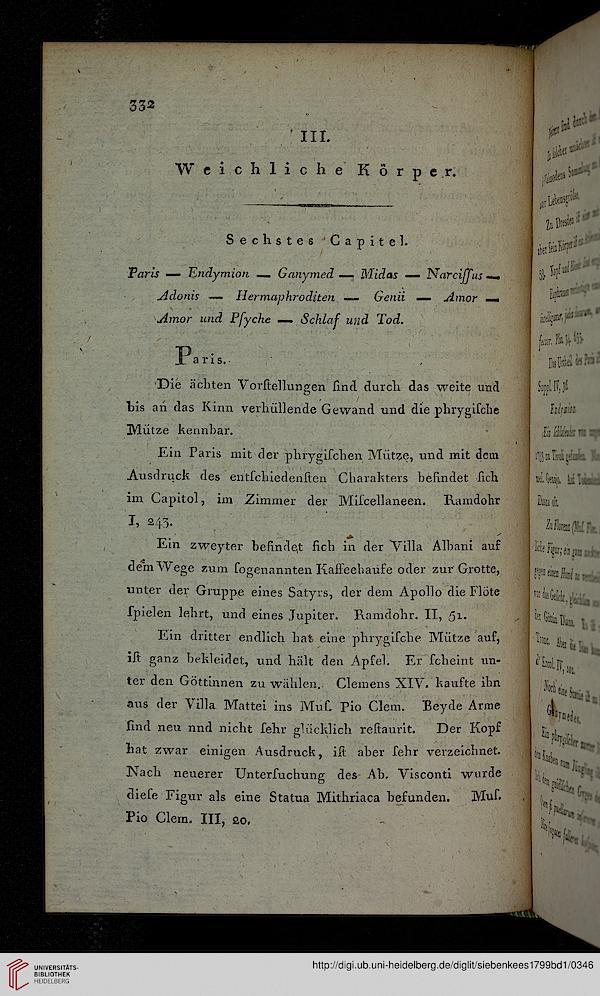 332
III.
Weichliche Körper.
Sechstes Capitel.
Paris — Endymion — Ganymed — Midas — Narciſſus —
Adonis — Hermaphroditen — Genii — Amor —
Amor und Pſyche — Schlaf und Tod.
Paris.
Die ächten Vorſtellungen ſind durch das weite und
bis an das Kinn verhüllende Gewand und die phrygiſche
Mütze kennbar.
Ein Paris mit der phrygiſchen Mütze, und mit dem
Ausdruck des entſchiedenſten Charakters befindet ſich
im Capitol, im Zimmer der Miſcellaneen. Ramdohr
I, 243.
Ein zweyter befindet ſich in der Villa Albani auf
dem Wege zum ſogenannten Kaffeehauſe oder zur Grotte,
unter der Gruppe eines Satyrs, der dem Apollo die Flöte
ſpielen lehrt, und eines Jupiter. Ramdohr. II, 51.
Ein dritter endlich hat eine phrygiſche Mütze auf,
iſt ganz bekleidet, und hält den Apfel. Er ſcheint un-
ter den Göttinnen zu wählen. Clemens XIV. kaufte ihn
aus der Villa Mattei ins Muſ. Pio Clem. Beyde Arme
ſind neu nnd nicht ſehr glücklich reſtaurit. Der Kopf
hat zwar einigen Ausdruck, iſt aber ſehr verzeichnet.
Nach neuerer Unterſuchung des Ab. Visconti wurde
dieſe Figur als eine Statua Mithriaca befunden. Muſ.
Pio Clem. III, 20.
UNIVERSITÄTS-
BIBLIOTHEK
HEIDELBERG
http://digi.ub.uni-heidelberg.de/diglit/siebenkees1799bd1/0346